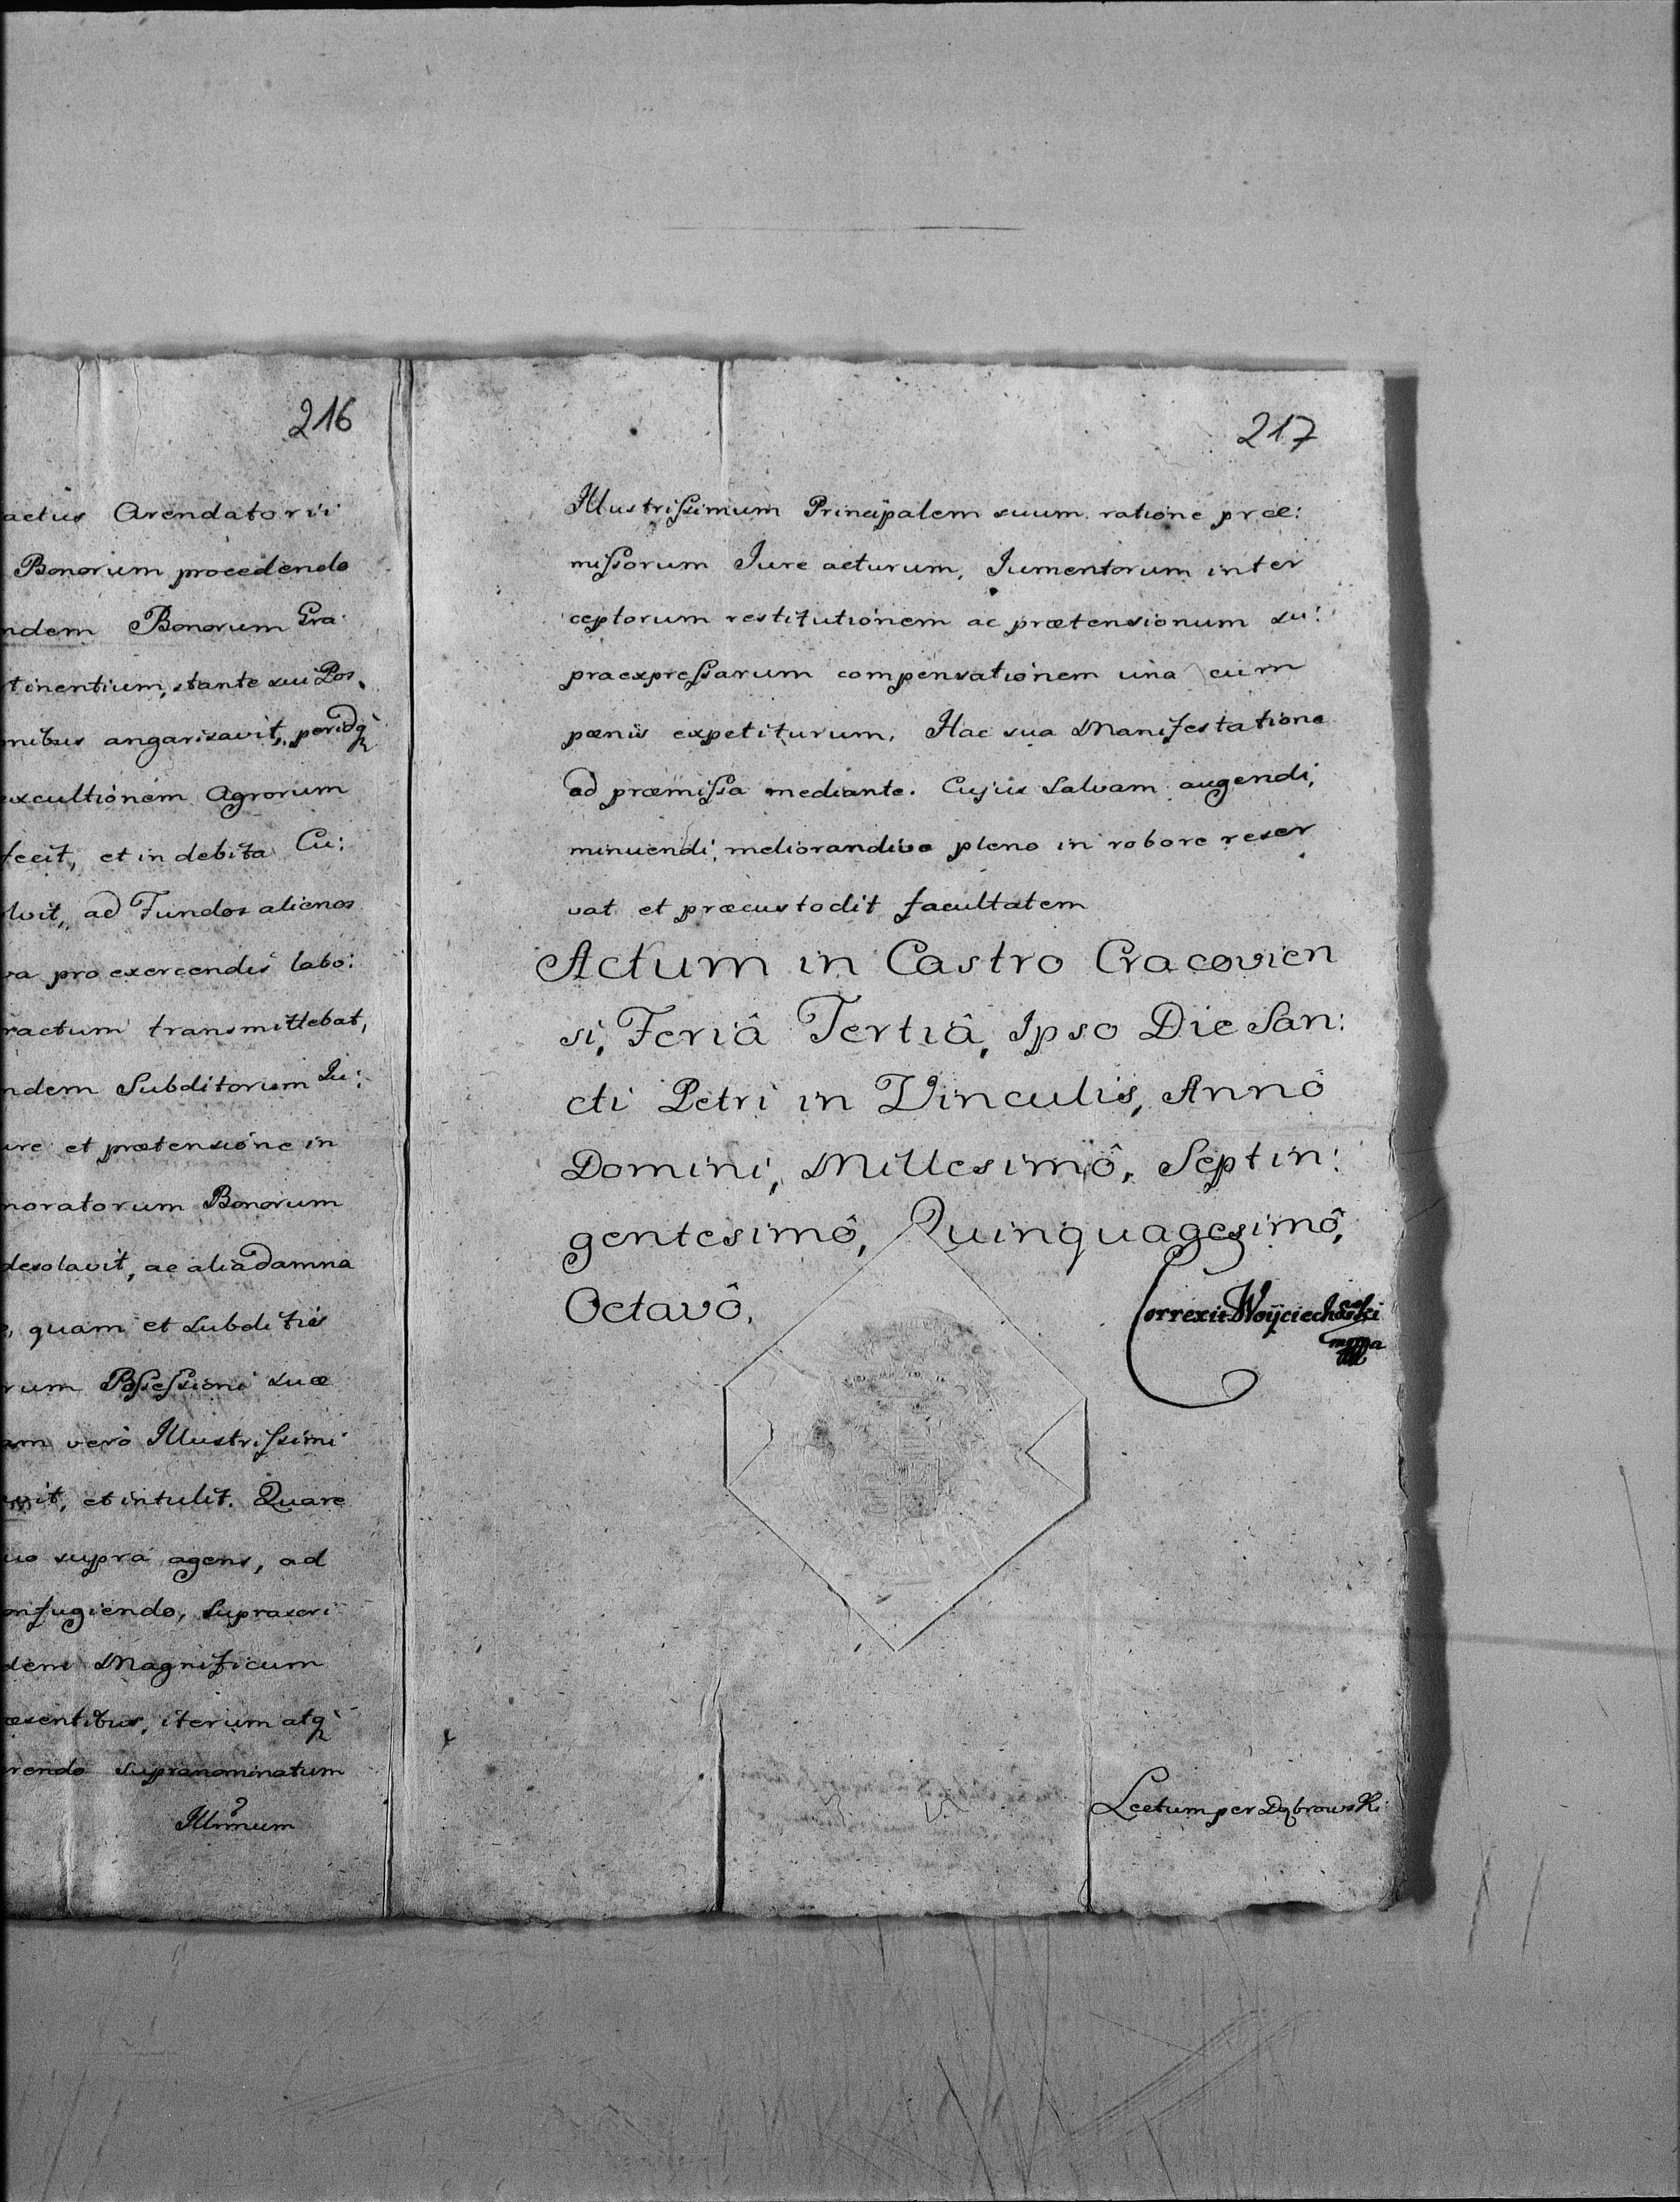 216
actus Arendatorii
Bonorum procedendo
ndem Bonorum Gra
tinentium, stante sui Pos.
nibus angarisavit, peridq̀
excultionem Agrorum
fecit, et in debita Cu:
lvit, ad Fundos alienos
va pro exercendis labo:
ractum transmittebat,
ndem Subditorum Iu:
ure et prætensione in
noratorum Bonorum
desolavit, ac alia damna
quam et Subditis
rum Possessioni suæ
am verò Illustrissimi
it, et intulit. Quare
uo supra agens, ad
onfugiendo, Suprascri
dem Magnificum
æsentibus, iterum atq̀
rendo Supranominatum
Illmum
217
Illustrissimum Principalem suum ratione præ:
missorum Iure acturum, Iumentorum inter
ceptorum restitutionem ac prætensionum su:
praexpressarum compensationem una cum
pœnis expetiturum, Hac sua Manifestatione
ad præmissa mediante. Cujus Salvam augendi,
minuendi, meliorandive pleno in robore reser
vat et præcustodit facultatem
Actum in Castro Cracovien
si, Feriâ Tertiâ, Ipso Die San:
cti Petri in Vinculis, Annô
Domini, Millesimô, Septin:
gentesimô, Quinquagesimô,
Octavô.
Correxit Woyciechowski
mppa
Lectum per Dąbrowski